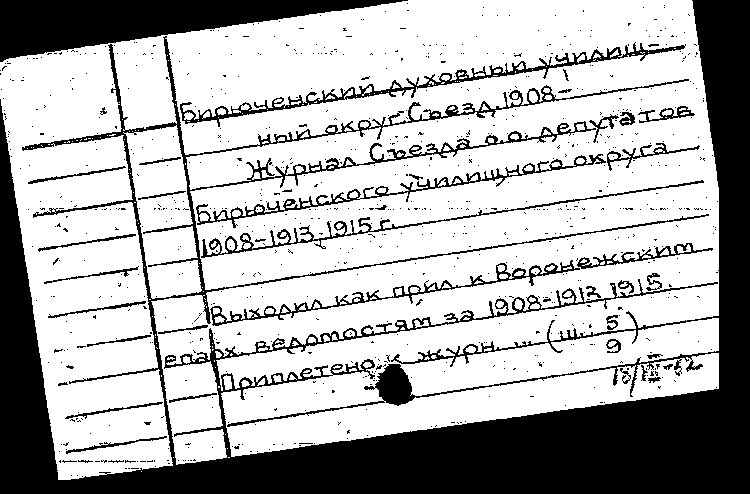 Бирюченский духовный училищ-
ный округ. Съезд. 1908-
Журнал Съезда о.о. депутатов
Бирюченского училищного округа
1908-1913, 1915 г.
Выходил как прил. к Воронежским
епарх. ведомостям за 1908-1913, 1915.
Приплетено к журн. ... (ш.: 5/9).
18/VII-62